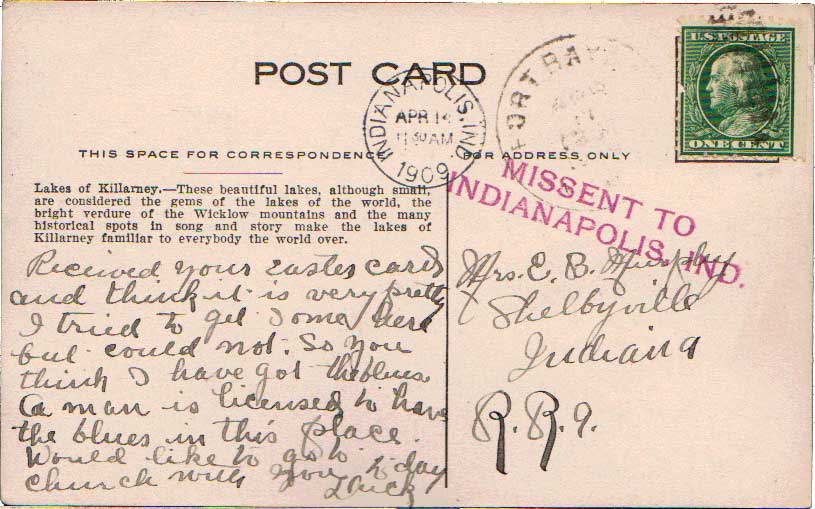 POST CARD
U.S. POSTAGE
ONE CENT
INDIANAPOLIS, IND.
APR 14
11 30 AM
1909
FORT BA
APR
11
THIS SPACE FOR CORRESPONDENCE
FOR ADDRESS ONLY
MISSENT TO
INDIANAPOLIS, IND.
Lakes of Killarney.—These beautiful lakes, although small,
are considered the gems of the lakes of the world, the
bright verdure of the Wicklow mountains and the many
historical spots in song and story make the lakes of
Killarney familiar to everybody the world over.
Received your Easter card
and think it is very pretty
I tried to get some here
but could not. So you
think I have got the blues
a man is licensed to have
the blues in this place.
Would like to go to
church with you to day
Mrs. E. B. Murphy
Shelbyville
Indiana
R.R.9.